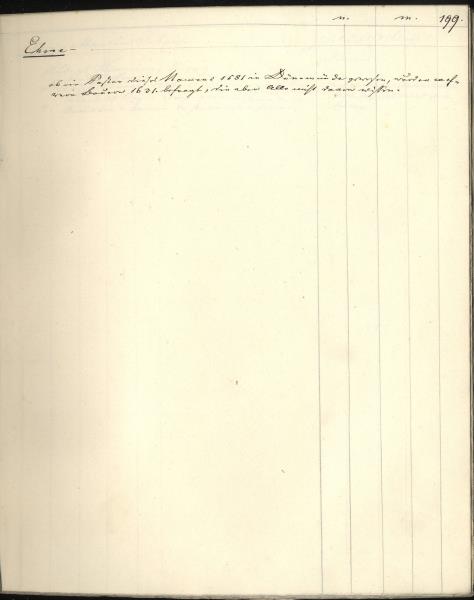 n. m. 199.
Ehme -
ob ein Pastor dieses Namens 1581 in Dünamünde gewesen, wurden meh-
rere Bauern 1631. befragt, die aber Alle nicht davon wissen.